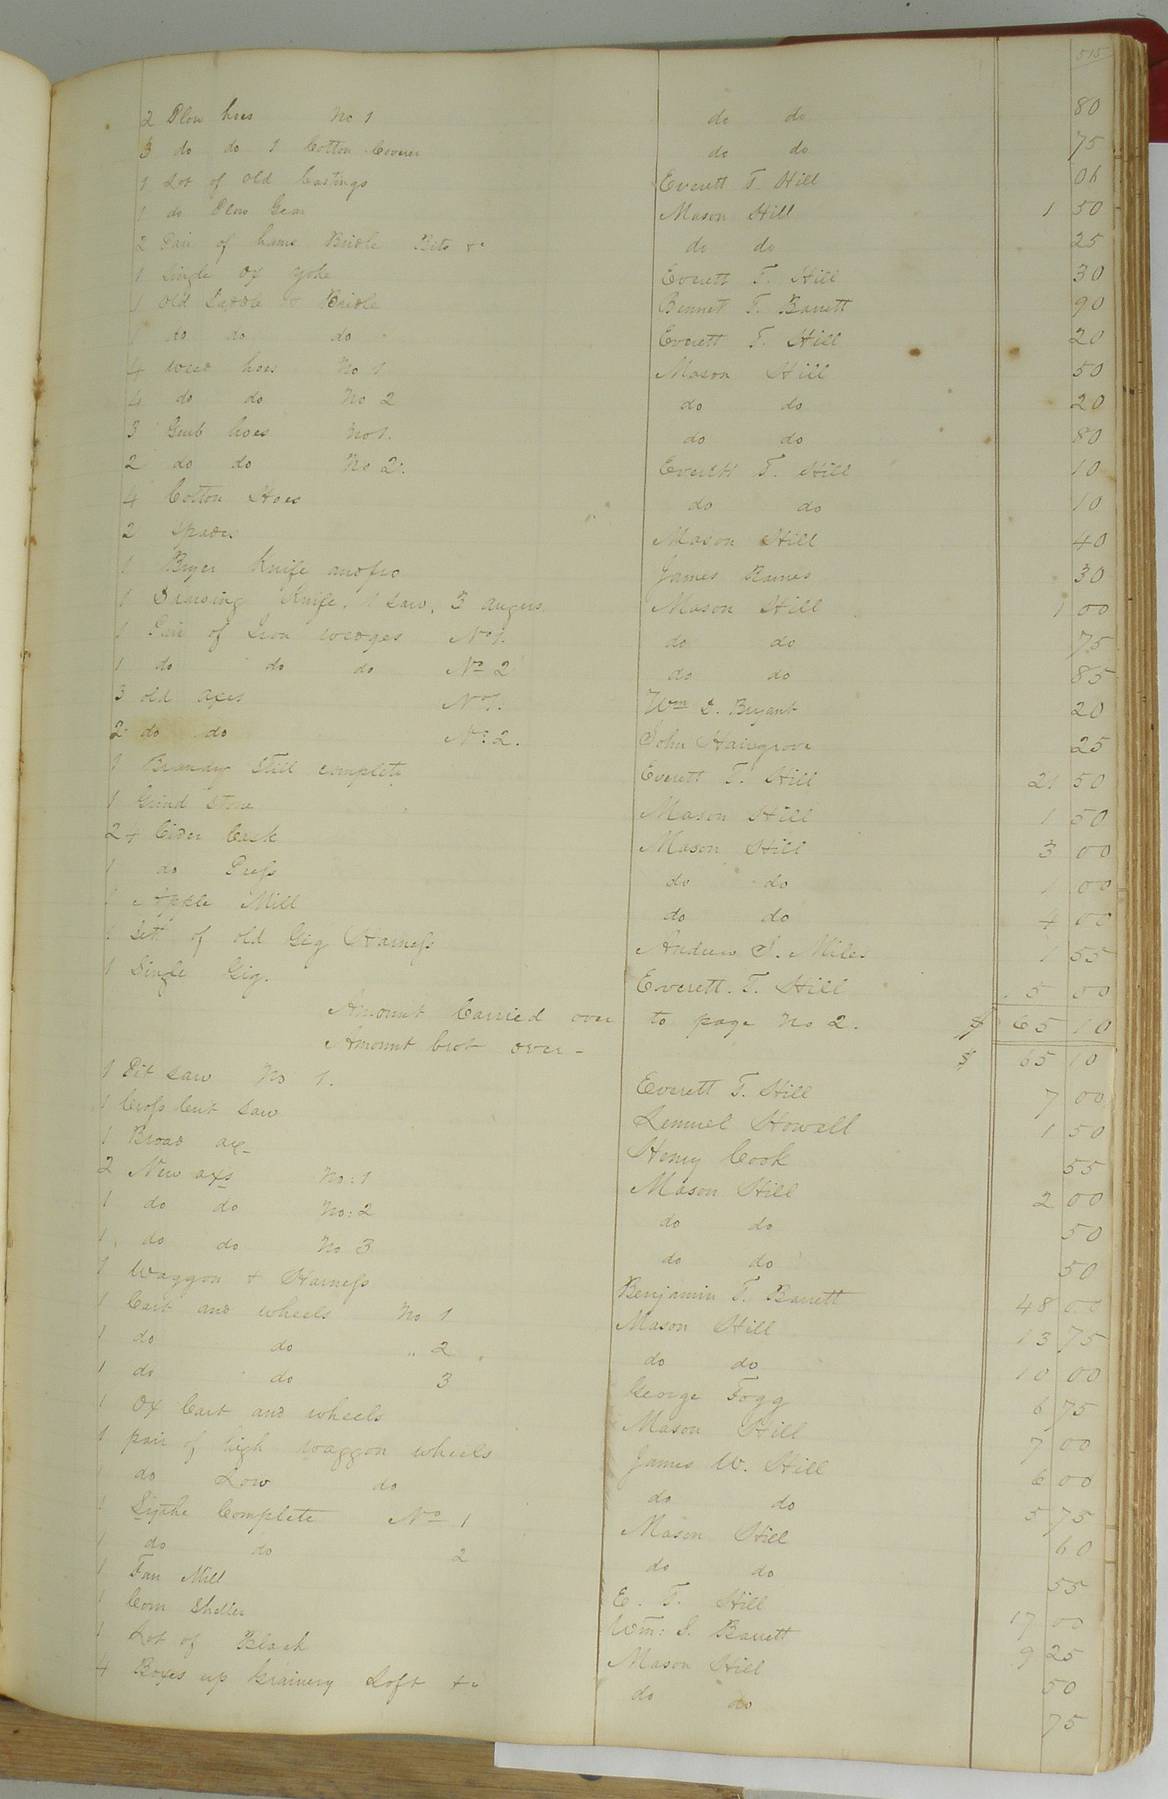 515
2 Plow hoes No 1 do do 80
3 do do 1 Cotton Coverer do do 75
1 Lot of old Castings Everett T. Hill 06
1 do Plow Gear Mason Hill 1 50
2 Pair of hams Bridle Bits &c do do 25
1 Single ox yoke Everett T. Hill 30
1 old Saddle & Bridle Bennet T. Barrett 90
1 do do do Everett T. Hill 20
4 weed hoes No 1 Mason Hill 50
4 do do No 2 do do 20
3 Grub hoes No 1. do do 80
2 do do No 2. Everett T. Hill 10
4 Cotton Hoes do do 10
2 spades Mason Hill 40
1 Bryer Knife James Raines 30
1 Drawing Knife, 1 saw, 3 augers Mason Hill 1 00
1 Pair of Iron wedges No 1. do do 75
1 do do do No 2 do do 85
3 old axes No 1. Wm L. Bryant 20
2 do do No 2. John Hairgrove 25
1 Brandy Still complete Everett T. Hill 21 50
1 Grind stone Mason Hill 1 50
24 Cider Cask Mason Hill 3 00
1 do Press do do 1 00
1 Apple Mill do do 4 00
1 Sett of old Gig Harness Andrew J. Miles 1 55
1 Single Gig. Everett. T. Hill 5 00
Amount Carried over to page No 2. $ 65 10
Amount brot over - $ 65 10
1 Pit saw No 1. Everett T. Hill 7 00
1 Cross Cut saw Lemuel Howell 1 50
1 Broad ax Henry Cook 55
2 New axs No: 1 Mason Hill 2 00
1 do do No: 2 do do 50
1 do do No 3 do do 50
1 Waggon & Harness Benjamin T. Barrett 48 00
1 Cart and wheels No 1 Mason Hill 13 75
1 do do " 2 do do 10 00
1 do do 3 George Fogg 6 75
1 Ox Cart and wheels Mason Hill 7 00
1 pair of high waggon wheels James W. Hill 6 00
1 do Low do do do 5 75
1 Sythe Complete No 1 Mason Hill 60
1 do do 2 do do 55
1 Fan Mill E. T. Hill 17 00
1 Corn Sheller Wm: J. Barrett 9 25
1 Lot of Mason Hill 50
4 Boxes up Grainery Loft &c do do 75